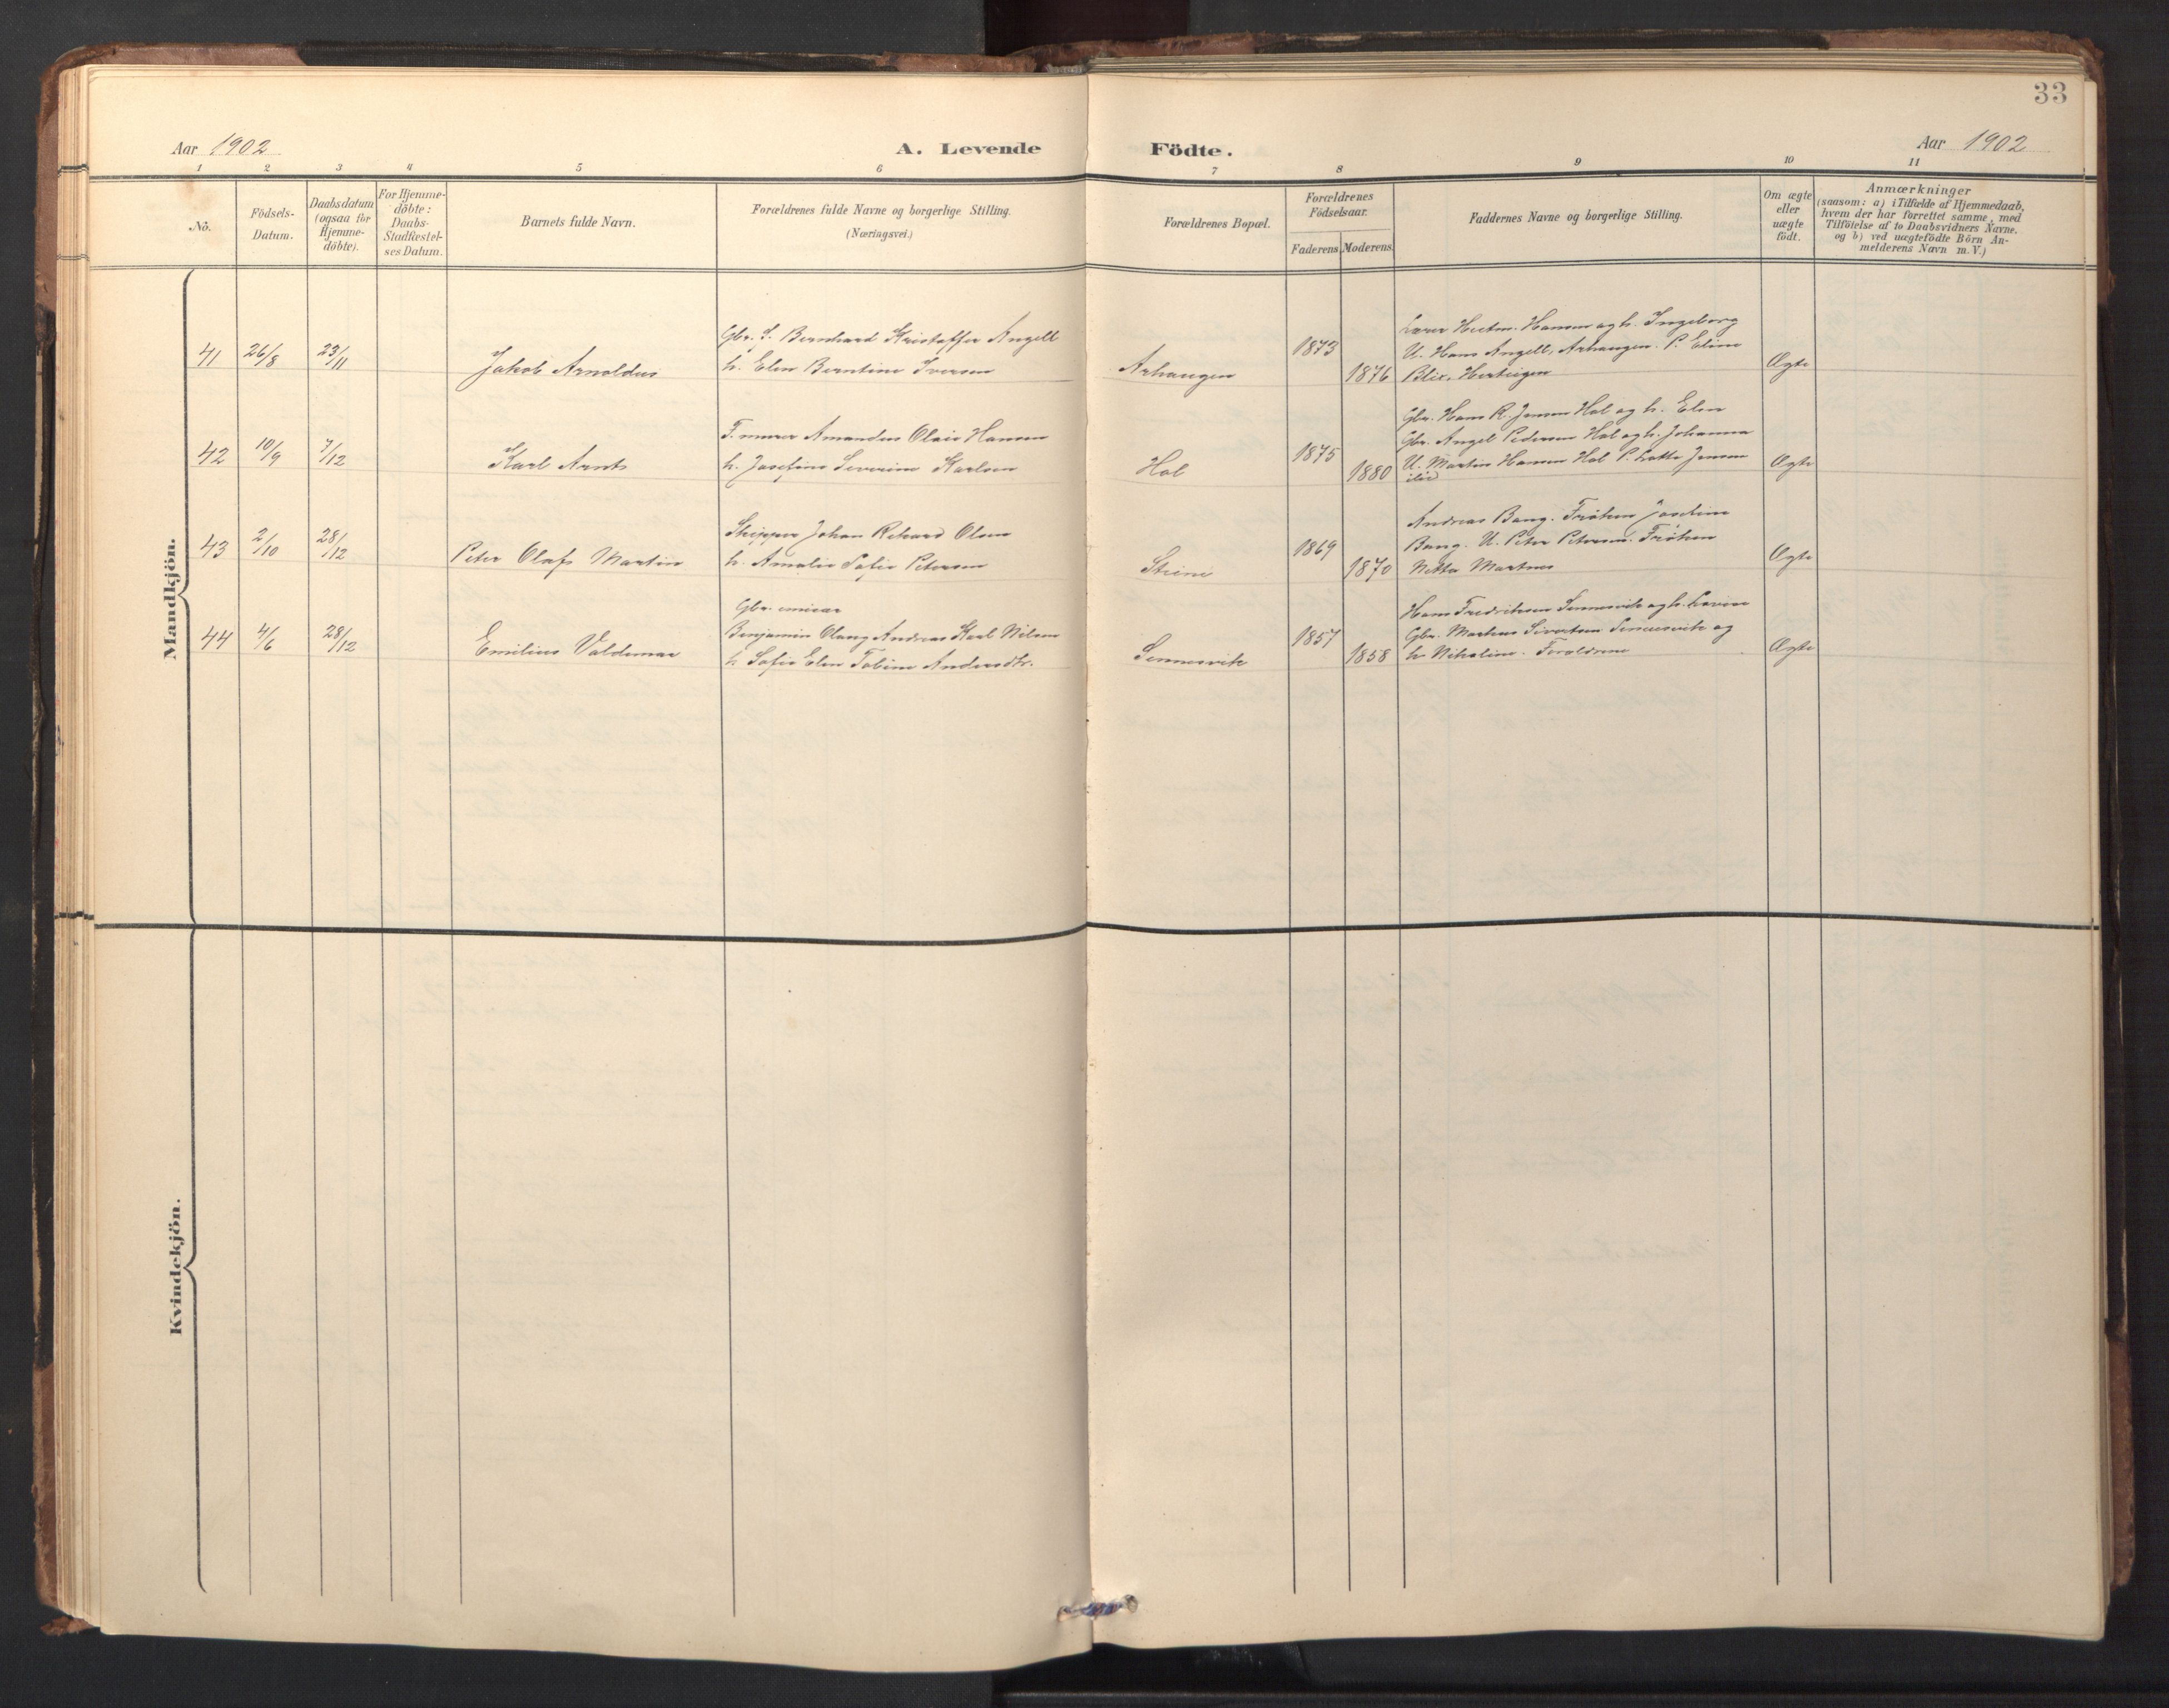 33
Aar 1902
A. Levende Födte.
Aar 1902
1 2 3 4 5 6 7 8 9 10 11
No.
Födsels-Datum.
Daabsdatum (ogsaa for Hjemme-döbte).
For Hjemme-döbte: Daabs-Stadfæstel-ses Datum.
Barnets fulde Navn.
Forældrenes fulde Navne og borgerlige Stilling.
(Næringsvei.)
Forældrenes Bopæl.
Forældrenes Födselsaar.
Faderens. Moderens.
Faddernes Navne og borgerlige Stilling.
Om ægte eller uægte födt.
Anmærkninger
(saasom: a) i Tilfælde af Hjemmedaab,
hvem der har forrettet samme, med
Tilföielse af to Daabsvidners Navne.
og b) ved uægtefödte Börn An-
melderens Navn m. V.)
Mandkjön.
41 26/8 23/11 Jakob Arnoldus
Gbr. S. Bernhard Kristoffer Angell
h. Elen Berntine Iversen
Arhaugen 1873 1876
Hansen og h. Ingeborg
U. Hans Angell, Arhaugen. P. Eline
Blix,
Ægte
42 10/9 7/12 Karl Arnts
Amandus Olais Hansen
h. Josefine Severine Karlsen
Hol 1875 1880
Gbr. Hans R. Jensen Hol og h. Elen
Gbr. Angel Pedersen Hol og h. Johanna
U. Martin Hansen Hol P. Lotte Jensen
ibid
Ægte
43 2/10 28/12 Peter Olaf Martin
Skipper Johan Rikard Olsen
h. Amalie Sofie Petersen
Steine 1869 1870
Andreas Bang. Frøken Joseline
Bang. U. Peter Petersen. Frøken
Netta
Ægte
44 4/6 28/12 Emilius Valdemar
Gbr.
Benjamin Olaug Andreas Karl Nilsen
h. Sofie Elen Tobine Andersdtr.
Sennesvik 1857 1858
Hans Fredriksen Sennesvik og h. Lovise
Gbr. Markus Sivertsen Sennesvik og
h. Nikoline. Forældrene
Ægte
Kvindekjön.